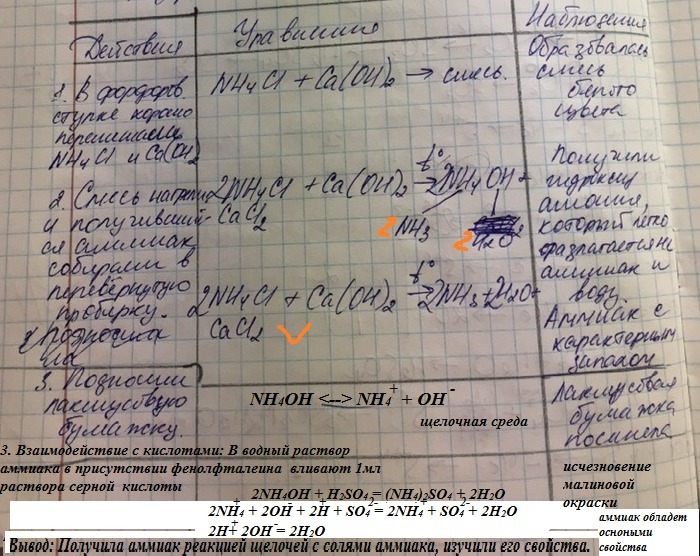 Действия
Уравнение
Наблюдения
1. В фарфоров.
ступке хорошо
перемешали
NH4Cl и Ca(OH)2
NH4Cl + Ca(OH)2 → смесь.
Образовалась
смесь
белого
цвета
2. Смесь нагрели
и получивший-
ся аммиак
собирали в
перевёрнутую
пробирку.
2NH4Cl + Ca(OH)2 →t° 2NH4OH +
CaCl2
2NH3
2H2O
2NH4Cl + Ca(OH)2 →t° 2NH3 + 2H2O +
CaCl2
Получили
гидроксид
аммония,
который легко
разлагается на
аммиак и
воду
Аммиак с
характерным
запахом
3. Подносили
лакмусовую
бумажку.
NH4OH <--> NH4+ + OH-
щелочная среда
Лакмусовая
бумажка
посинела
3. Взаимодействие с кислотами: В водный раствор
аммиака в присутствии фенолфталеина вливают 1мл
раствора серной кислоты
2NH4OH + H2SO4 = (NH4)2SO4 + 2H2O
2NH4+ + 2OH- + 2H+ + SO4 2- = 2NH4+ + SO4 2- + 2H2O
2H+ 2OH- = 2H2O
исчезновение
малиновой
окраски
аммиак обладет
осноными
свойства
Вывод: Получила аммиак реакцией щелочей с солями аммиака, изучили его свойства.